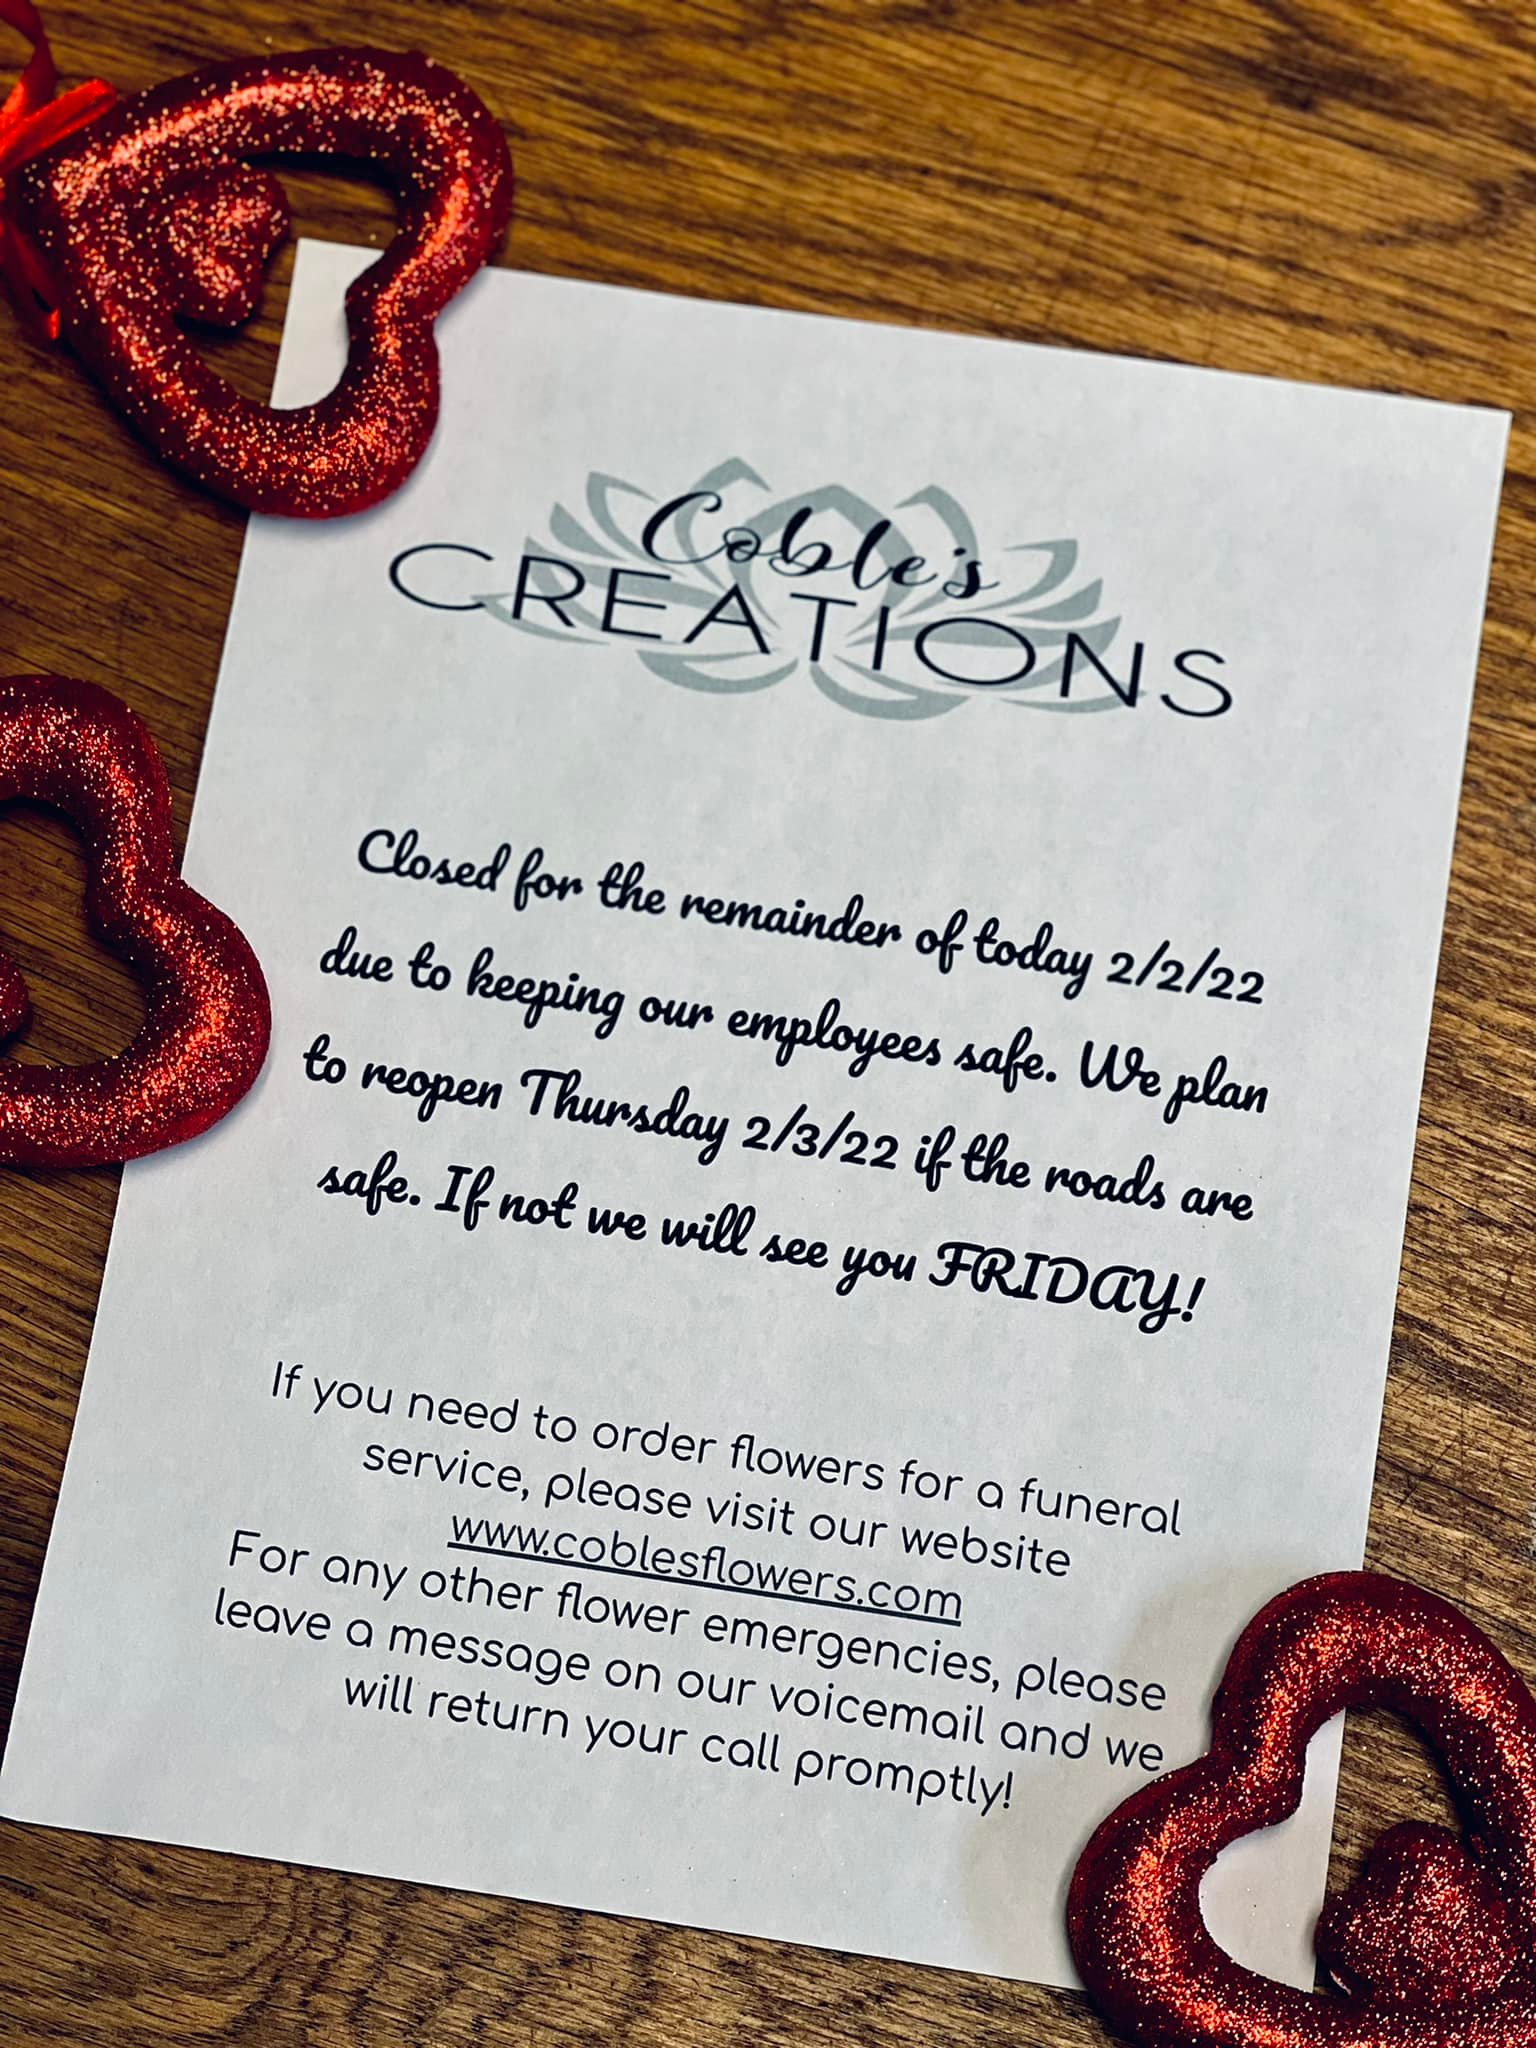 Coble's
CREATIONS
Closed for the remainder of today 2/2/22
due to keeping our employees safe. We plan
to reopen Thursday 2/3/22 if the roads are
safe. If not we will see you FRIDAY!
If you need to order flowers for a funeral
service, please visit our website
www.coblesflowers.com
For any other flower emergencies, please
leave a message on our voicemail and we
will return your call promptly!